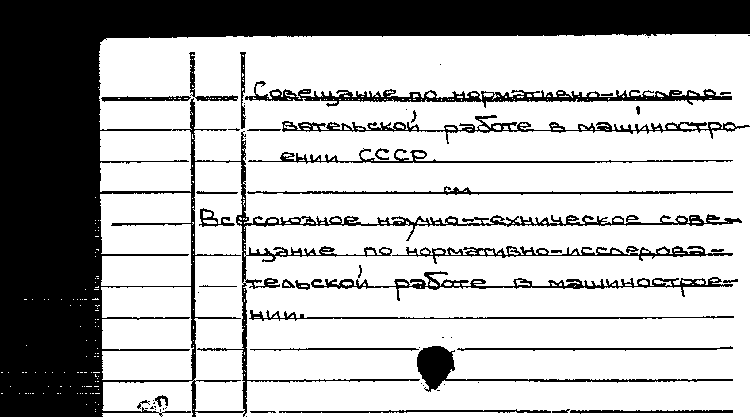 Совещание по нормативно-исследо-
вательской работе в машиностро-
ении СССР.
см
Всесоюзное научно-техническое сове-
щание по нормативно-исследова-
тельской работе в машинострое-
нии.